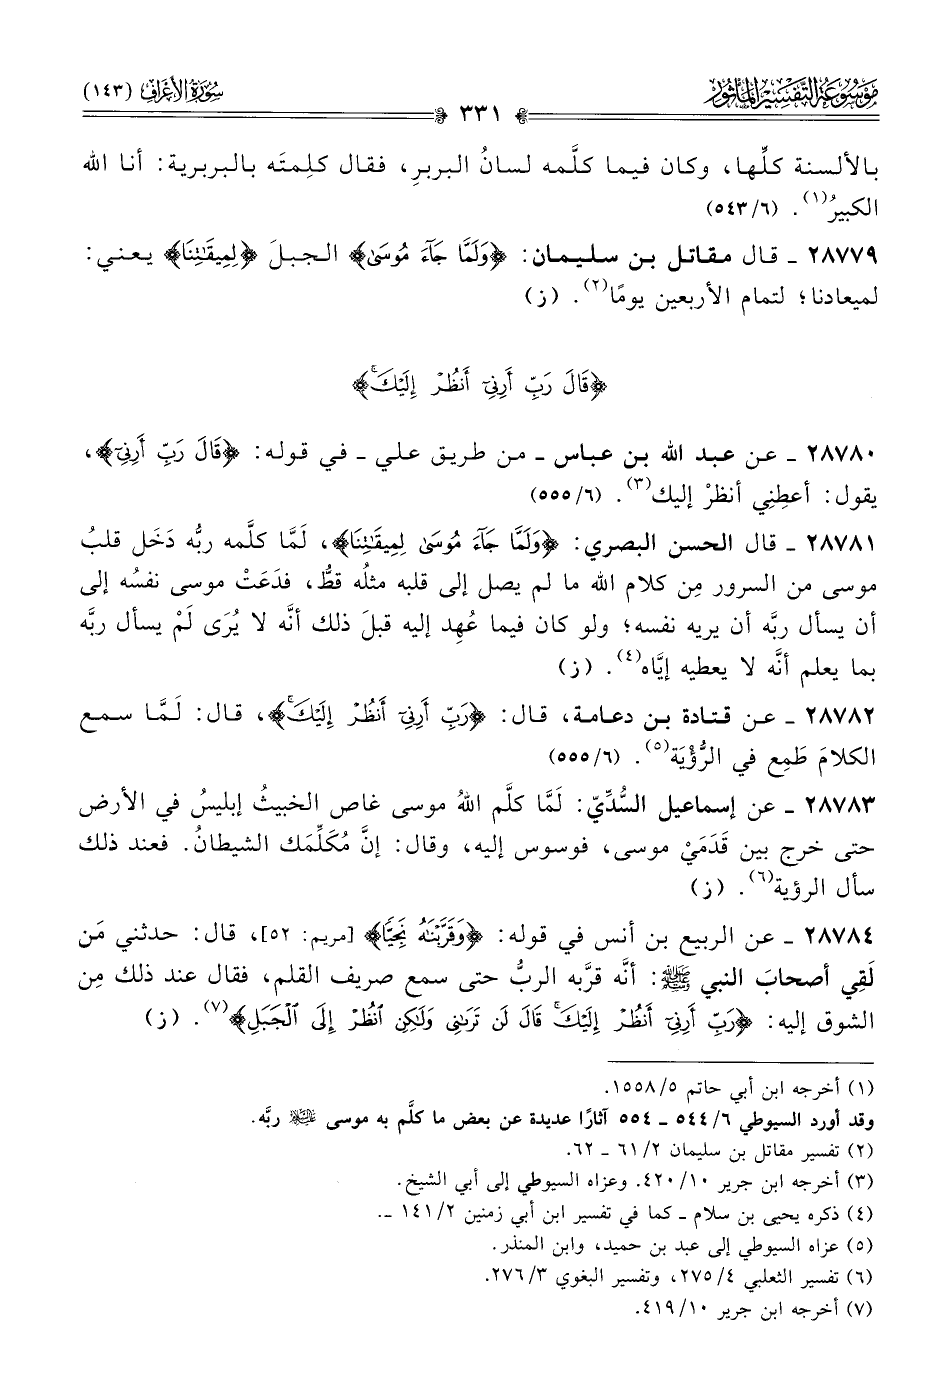 مَوْسُوعَةُ التَّفْسِيرِ المَأْثُورِ
سُورَةُ الأَعْرَافِ (١٤٣)
٣٣١
بالألسنة كلِّها، وكان فيما كلَّمه لسانُ البربرِ، فقال كلِمتَه بالبربرية: أنا الله
الكبيرُ(١). (٥٤٣/٦)
٢٨٧٧٩ ـ قال مقاتل بن سليمان: ﴿وَلَمَّا جَآءَ مُوسَىٰ﴾ الجبلَ ﴿لِمِيقَٰتِنَا﴾ يعني:
لميعادنا؛ لتمام الأربعين يومًا(٢). (ز)
﴿قَالَ رَبِّ أَرِنِىٓ أَنظُرْ إِلَيْكَۚ﴾
٢٨٧٨٠ ـ عن عبد الله بن عباس ـ من طريق علي ـ في قوله: ﴿قَالَ رَبِّ أَرِنِىٓ﴾،
يقول: أعطِني أنظرْ إليك(٣). (٥٥٥/٦)
٢٨٧٨١ ـ قال الحسن البصري: ﴿وَلَمَّا جَآءَ مُوسَىٰ لِمِيقَٰتِنَا﴾، لَمَّا كلَّمه ربُّه دَخَل قلبُ
موسى من السرور مِن كلام الله ما لم يصل إلى قلبه مثلُه قطُّ، فدَعَتْ موسى نفسُه إلى
أن يسأل ربَّه أن يريه نفسه؛ ولو كان فيما عُهِد إليه قبلَ ذلك أنَّه لا يُرَى لَمْ يسأل ربَّه
بما يعلم أنَّه لا يعطيه إيَّاه(٤). (ز)
٢٨٧٨٢ ـ عن قتادة بن دعامة، قال: ﴿رَبِّ أَرِنِىٓ أَنظُرْ إِلَيْكَۚ﴾، قال: لَمَّا سمع
الكلامَ طَمِع في الرُّؤْيَة(٥). (٥٥٥/٦)
٢٨٧٨٣ ـ عن إسماعيل السُّدِّيّ: لَمَّا كلَّم اللهُ موسى غاص الخبيثُ إبليسُ في الأرض
حتى خرج بين قَدَمَيْ موسى، فوسوس إليه، وقال: إنَّ مُكَلِّمَك الشيطانُ. فعند ذلك
سأل الرؤية(٦). (ز)
٢٨٧٨٤ ـ عن الربيع بن أنس في قوله: ﴿وَقَرَّبْنَٰهُ نَجِيًّا﴾ [مريم: ٥٢]، قال: حدثني مَن
لَقِي أصحابَ النبي ﷺ: أنَّه قربه الربُّ حتى سمع صريف القلم، فقال عند ذلك مِن
الشوق إليه: ﴿رَبِّ أَرِنِىٓ أَنظُرْ إِلَيْكَۚ قَالَ لَن تَرَىٰنِى وَلَٰكِنِ ٱنظُرْ إِلَى ٱلْجَبَلِ﴾(٧). (ز)
(١) أخرجه ابن أبي حاتم ١٥٥٨/٥.
وقد أورد السيوطي ٥٤٤/٦ ـ ٥٥٤ آثارًا عديدة عن بعض ما كلَّم به موسى ﵇ ربَّه.
(٢) تفسير مقاتل بن سليمان ٦١/٢ ـ ٦٢.
(٣) أخرجه ابن جرير ٤٢٠/١٠. وعزاه السيوطي إلى أبي الشيخ.
(٤) ذكره يحيى بن سلام ـ كما في تفسير ابن أبي زمنين ١٤١/٢ ـ.
(٥) عزاه السيوطي إلى عبد بن حميد، وابن المنذر.
(٦) تفسير الثعلبي ٢٧٥/٤، وتفسير البغوي ٢٧٦/٣.
(٧) أخرجه ابن جرير ٤١٩/١٠.